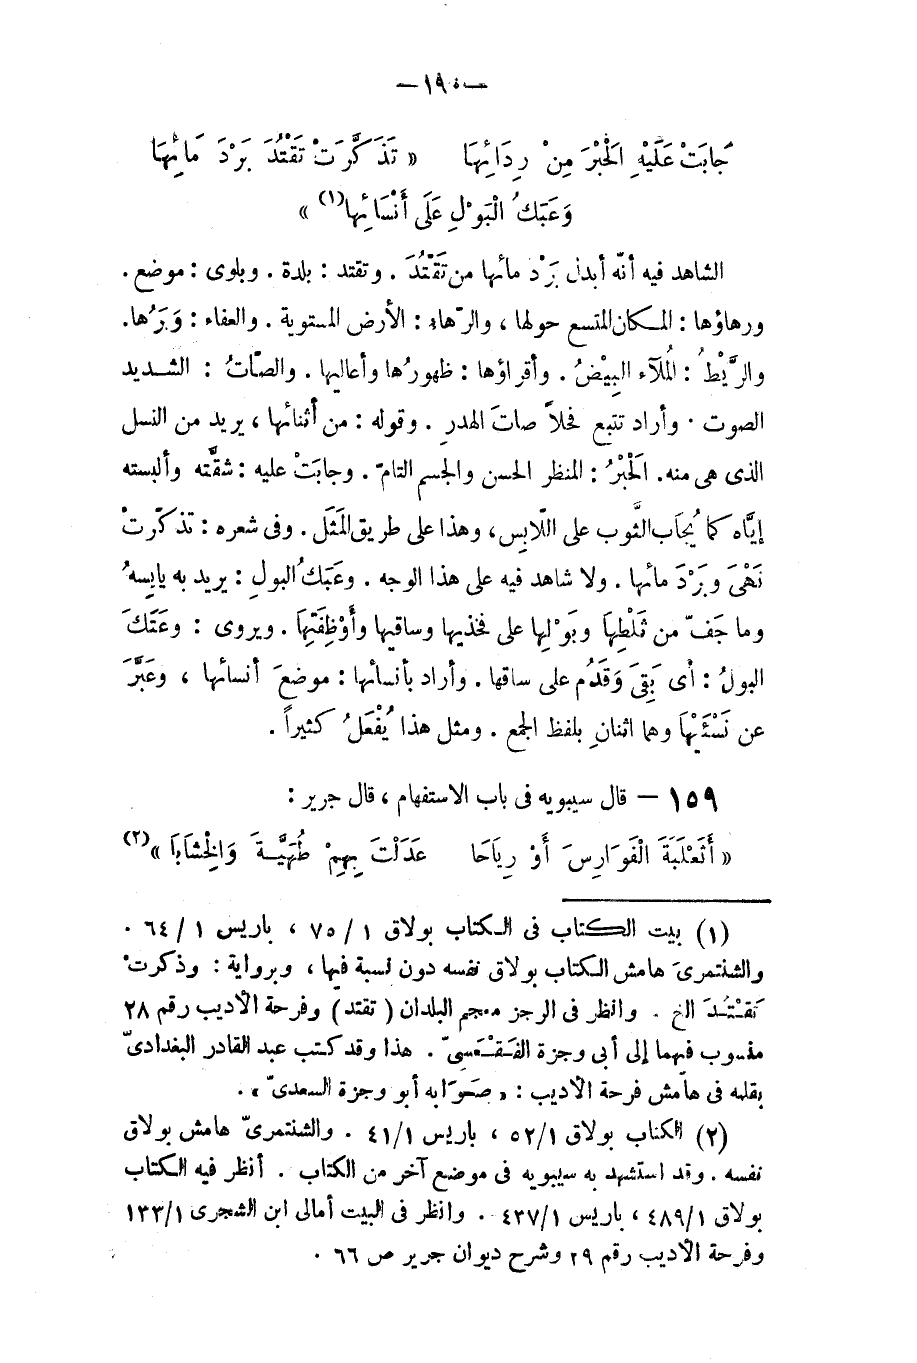 — ١٩٠ —
جَابَتْ عَلَيْهِ الْحَبْرَ مِنْ رِدَائِهَا « تَذَكَّرَتْ تَقْتُدَ بَرْدَ مَائِهَا
وَعَبَكُ الْبَوْلِ عَلَى أَنْسَائِهَا (١) »
الشاهد فيه أنّه أبدل بَرْد مائها من تَقْتُدَ . وتقتد : بلدة . وبلوى : موضع .
ورهاؤها : المكان المتسع حولها ، والرّهاء : الأرض المستوية . والعفاء : وَبَرُها.
والرَّيْطُ : المُلَاء البِيْضُ . وأقراؤها : ظهورُها وأعاليها . والصّاتُ : الشديد
الصوت . وأراد تتبع فحلاً صاتَ الهدر . وقوله : من أثنائها ، يريد من النسل
الذى هى منه. الحَبْرُ : المنظر الحسن والجسم التامّ . وجابَتْ عليه : شقّته وألبسته
إيَّاه كما يُجاَب الثَّوب على اللّابس، وهذا على طريق المَثَل . وفى شعره : تذكّرتْ
نَهْىَ وبَرْدَ مائها . ولا شاهد فيه على هذا الوجه . وعَبَكُ البولِ : يريد به يابِسهُ
وما جَفّ من ثَلْطِها وبَوْلِها على فخذيها وساقيها وأَوْظِفَتِها . ويروى : وعَتَكَ
البولُ : أى بَقِىَ وَقَدُم على ساقها . وأراد بأنسائها : موضعَ أنسائها ، وعَبَّرَ
عن نَسْئَيْها وهما اثنانِ بلفظ الجمع . ومثل هذا يُفْعَلُ كثيراً .
١٥٩ — قال سيبويه فى باب الاستفهام ، قال جرير :
« أَثَعْلَبَةَ الْفَوَارِسَ أَوْ رِيَاحَا عَدَلْتَ بِهِمْ طُهَيَّةَ وَالْخِشَابَا » (٢)
(١) بيت الكتاب فى الكتاب بولاق ١ / ٧٥ ، باريس ١ / ٦٤ .
والشنتمرىَ هامش الكتاب بولاق نفسه دون نسبة فيها ، وبرواية : وذكرتْ
تَقْتُدَ الخ . وانظر فى الرجز معجم البلدان ( تقتد ) وفرحة الأديب رقم ٢٨
منسوب فيهما إلى أبى وجزة الفَقْعَسِىّ . هذا وقد كتب عبد القادر البغدادىّ
بقلمه فى هامش فرحة الأديب : « صَوَابه أبو وجزة السعدىّ » .
(٢) الكتاب بولاق ٥٢/١ ، باريس ٤١/١ . والشنتمرىّ هامش بولاق
نفسه . وقد استشهد به سيبويه فى موضع آخر من الكتاب . أنظر فيه الكتاب
بولاق ٤٨٩/١ ، باريس ٤٣٧/١ . وانظر فى البيت أمالى ابن الشجرى ١٣٣/١
وفرحة الأديب رقم ٢٩ وشرح ديوان جرير ص ٦٦ .